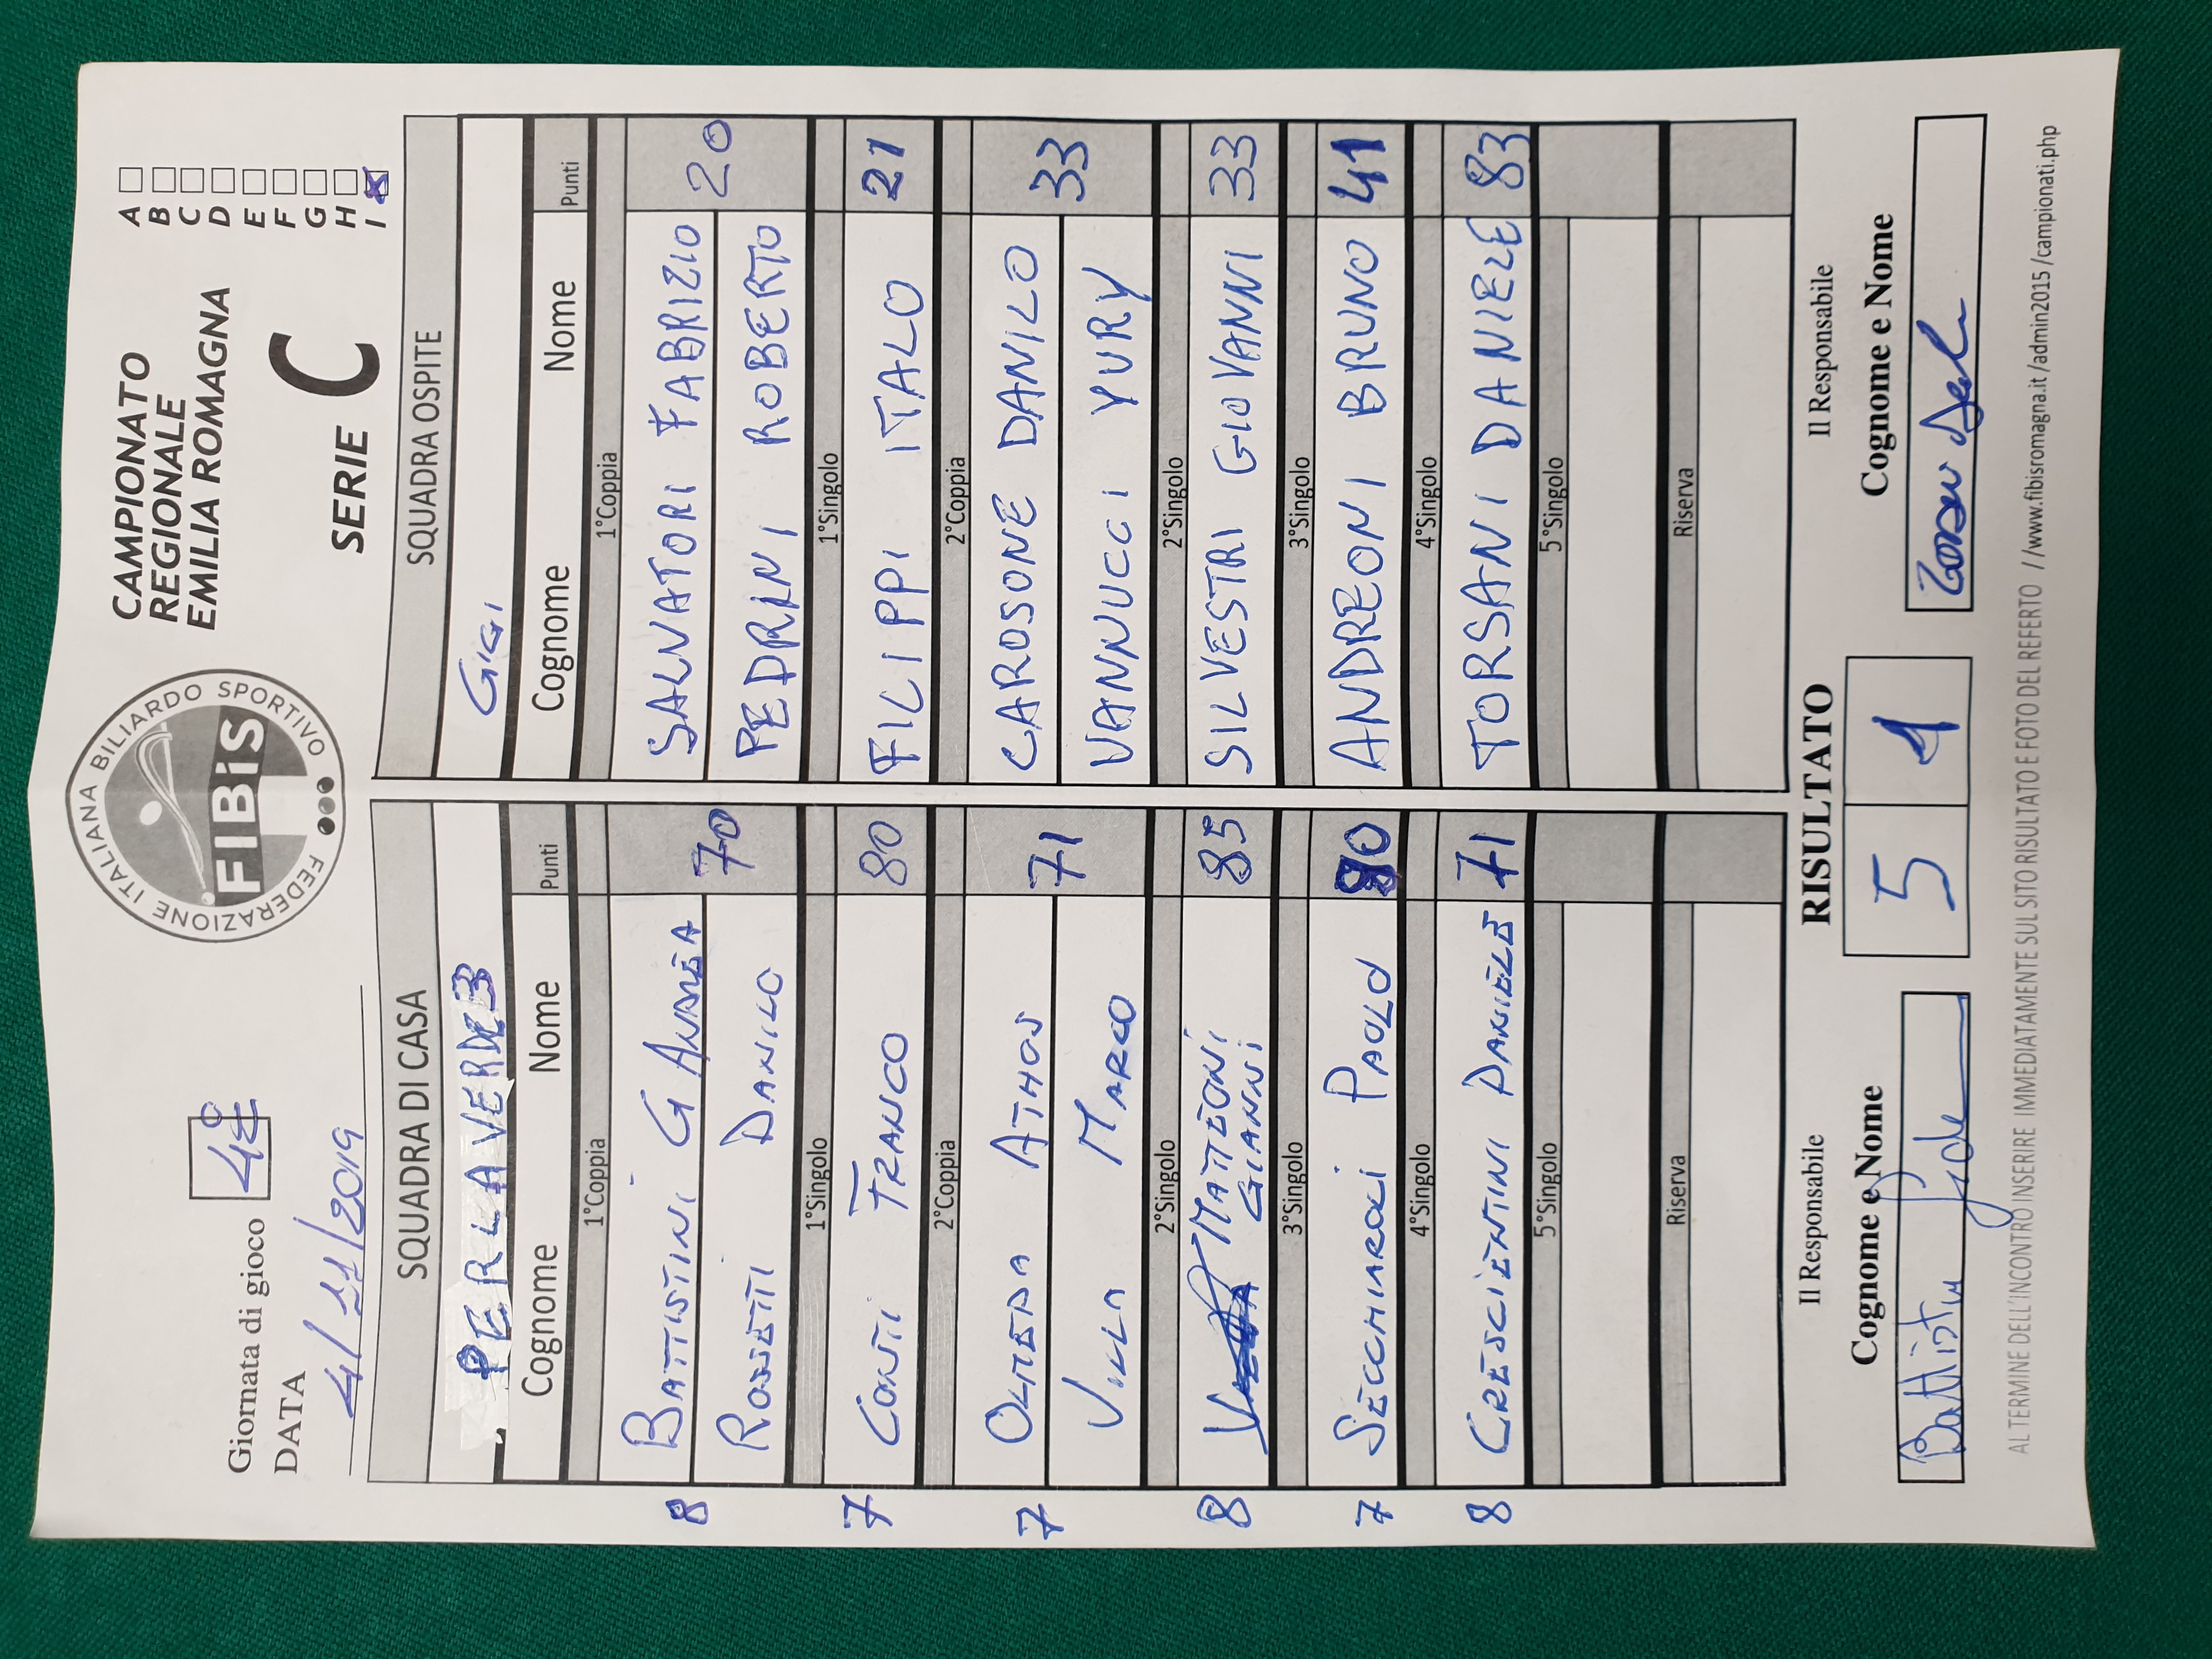 Giornata di gioco 4°
DATA
4/11/2019
FEDERAZIONE ITALIANA BILIARDO SPORTIVO
FIBiS
CAMPIONATO
REGIONALE
EMILIA ROMAGNA
SERIE C
A
B
C
D
E
F
G
H
I X
SQUADRA DI CASA
PERLAVERDE3
Cognome Nome Punti
1°Coppia
8 BATTISTINI G ANDREA
ROSSETTI DANILO 70
1°Singolo
7 CONTI FRANCO 80
2°Coppia
7 OLMEDA ATHOS 71
VILLA MARCO
2°Singolo
8 MATTEONI GIANNI 85
3°Singolo
7 SECCHIAROLI PAOLO
4°Singolo
8 CRESCIENTINI DANIELE 71
5°Singolo
Riserva
SQUADRA OSPITE
GIGI
Cognome Nome Punti
1°Coppia
SALVATORI FABRIZIO 20
PEDRINI ROBERTO
1°Singolo
FILIPPI ITALO 21
2°Coppia
CAROSONE DANILO 33
VANNUCCI YURY
2°Singolo
SILVESTRI GIOVANNI 33
3°Singolo
ANDREONI BRUNO 41
4°Singolo
TORSANI DANIELE 83
5°Singolo
Riserva
Il Responsabile
Cognome e Nome
RISULTATO
5 1
Il Responsabile
Cognome e Nome
AL TERMINE DELL'INCONTRO INSERIRE IMMEDIATAMENTE SUL SITO RISULTATO E FOTO DEL REFERTO //www.fibisromagna.it/admin2015/campionati.php